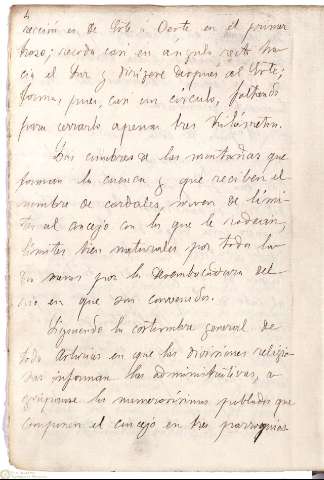 4
rección es de Este á Oeste en el primer
trozo; recoda casi en ángulo recto ha-
cia el Sur y dirígese después al Este;
forma, pues, casi un círculo, faltando
para cerrarlo apenas tres kilómetros.
Las cumbres de las montañas que
forman la cuenca y que reciben el
nombre de cordales, sirven de lími-
tes al concejo con los que le rodean,
límites bien naturales por todos la-
dos menos por la desembocadura del
río en que son convenidos.
Siguiendo la costumbre general de
toda Asturias en que las divisiones religio-
sas informan las administrativas, a-
grúpanse los numerosísimos poblados que
componen el concejo en tres parroquias